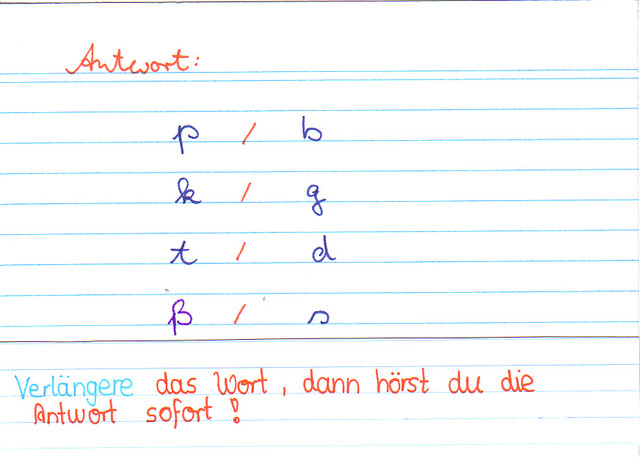 Antwort:
p / b
k / g
t / d
ß / s
Verlängere das Wort, dann hörst du die
Antwort sofort!